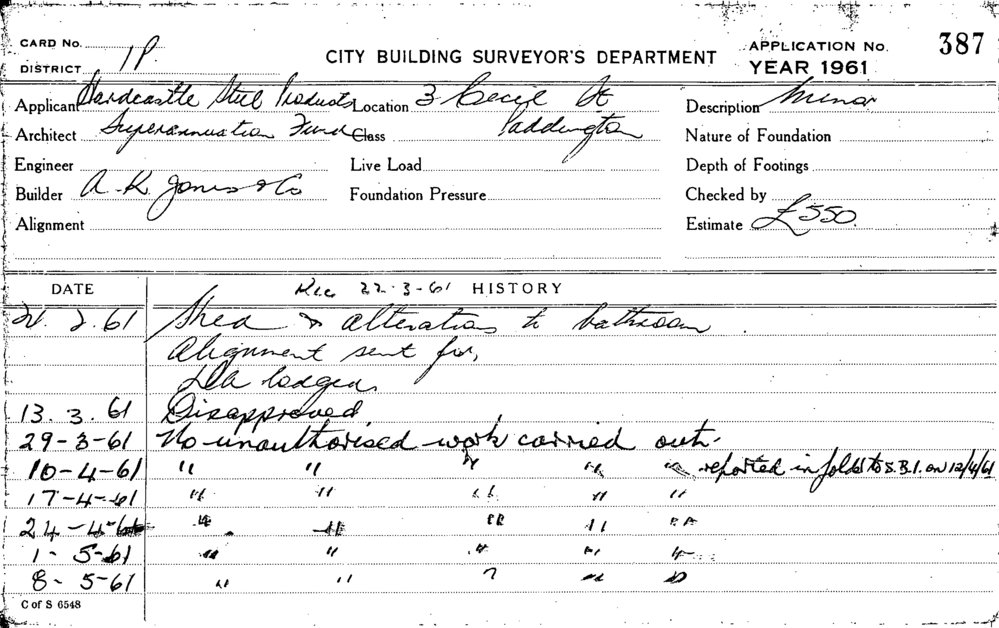 CARD No.
DISTRICT 1P.
CITY BUILDING SURVEYOR'S DEPARTMENT
APPLICATION No. 387
YEAR 1961
Applicant Hardcastle Steel Products Location 3 Cecil St Description Minor
Architect Superannuation Fund Class Paddington Nature of Foundation
Engineer Live Load Depth of Footings
Builder A. K. Jones & Co Foundation Pressure Checked by
Alignment Estimate £550.
DATE Rec 22-3-61 HISTORY
2.61 Shed & alterations to bathroom
Alignment sent for,
DA lodged.
13.3.61 Disapproved
29-3-61 No unauthorised work carried out.
10-4-61 " " " " " reported in folder to S.B.I. on 12/4/61
17-4-61 " " " " "
24-4-61 " " " " "
1-5-61 " " " " "
8-5-61 " " " " "
C of S 6548